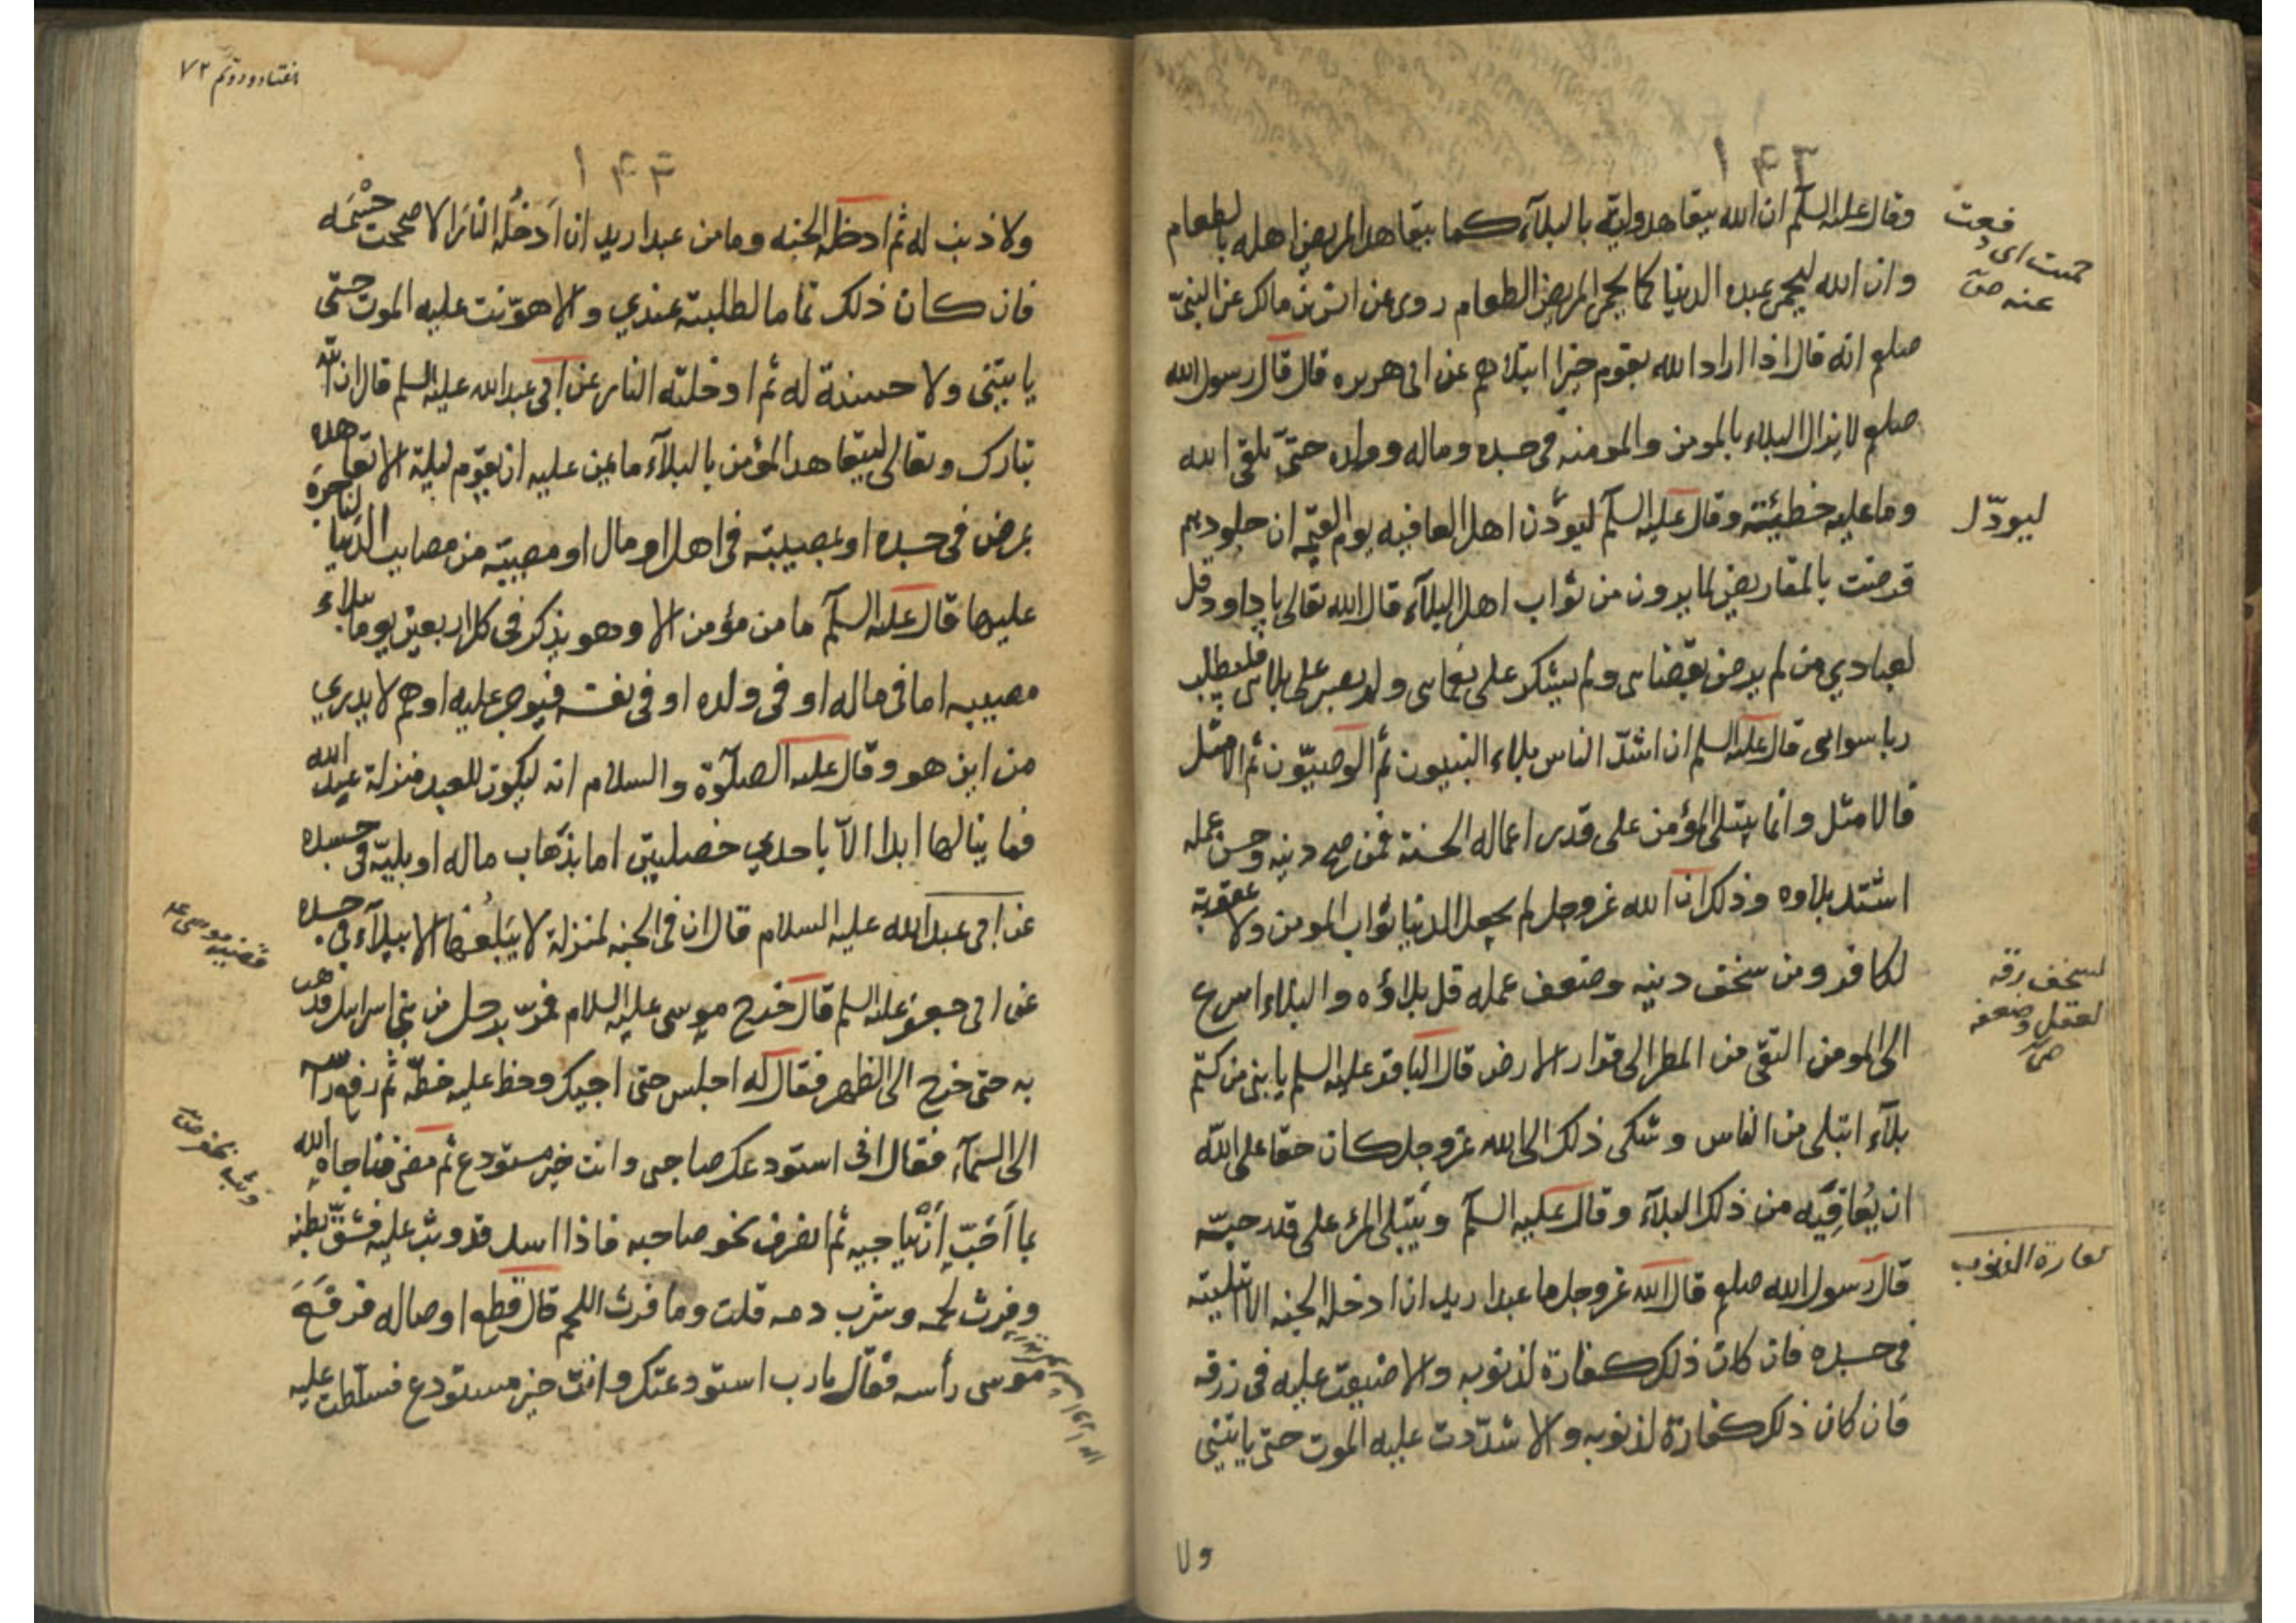 ١٤٢
وقال عليه السلم ان الله يتعاهد وليه بالبلآء كما يتعاهد المريض اهله بالطعام
وان الله ليحمى عبده الدنيا كما يحمى المريض الطعام روى عن انس بن مالك عن النبىّ
صلعم انه قال اذا اراد الله بقوم خيرا ابتلاهم عن ابى هريره قال قال رسول الله
صلعم لا يزال البلاء بالمومن والمومنه فى جسده وماله وولده حتىّ يلقى الله
وما عليه خطيئته وقال عليه السلم ليودّن اهل العافيه يوم القيمه ان جلودهم
قرضت بالمقاريض لما يرون من ثواب اهل البلآء قال الله تعالى يا داود قل
لعبادي من لم يرض بقضاىى ولم يشكر على نعماىى ولم يصبر على بلاىى فليطلب
ربا سواىى قال عليه السلم ان اشدّ الناس بلاء النبيون ثم الوصيّون ثم الامثل
فالامثل وانما يبتلى المؤمن على قدر اعماله الحسنة فمن صح دينه وحسن عمله
اشتد بلاوه وذلك ان الله عزوجل لم يجعل الدنيا ثواب المومن ولا عقوبة
لكافر ومن سخف دينه وضعف عمله قل بلاؤه والبلاء اسرع
الى المومن التقى من المطر الى قرار الارض قال الباقر عليه السلم يا بنى من كتم
بلآء ابتلى من الناس وشكى ذلك الى الله عزوجل كان حقا على الله
ان يُعَافِيَه من ذلك البلآء وقال عليه السلم ويبتلى المرء على قدر حبّه
قال رسول الله صلعم قال الله عزوجل ما عبدا ريد ان ادخله الجنه الا ابتليته
فى جسده فان كان ذلك كفارة لذنوبه والا ضيقت عليه فى رزقه
فان كان ذلك كفارة لذنوبه والا شدّدت عليه الموت حتى ياتينى
ولا
ليودّ
لسخف رقه
العقل وضعفه
كفارة الذنوب
٧٢
١٤٣
ولا ذنب له ثم ادخله الجنه وما من عبد اريد ان اَدخُله النار الا صححت جسْمَه
فان كان ذلك تماما لطلبته عندي والا هوّنت عليه الموت حتى
ياتينى ولا حسنة له ثم ادخلته النار عن ابى عبد الله عليه السلم قال ان الله
تبارك وتعالى ليتعاهد المؤمن بالبلآء ما يمن عليه ان يقوم ليلة الا تعاهده
بمرض فى جسده او بمصيبته فى اهل او مال او مصيبة من مصايب الدنيا لياجره
عليها قال عليه السلم ما من مؤمن الا وهو يذكر فى كل اربعين يوما ببلاء
مصيبه اما فى ماله او فى ولده او فى نفسه فيوجر عليه او هم لا يدري
من اين هو وقال عليه الصلوة والسلام انه ليكون للعبد منزلة عند الله
فما ينالها ابدا الاّ باحدي خصلتين اما بذهاب ماله او بليّة فى جسده
عن ابى عبد الله عليه السلام قال ان فى الجنه لمنزلة لا يَبلُغها الا ببلآء فى جسده
عن ابى جعفر عليه السلم قال خرج موسى عليه السلام فمرّ برجل من بنى اسرايل فذهب
به حتى خرج الى الظهر فقال له اجلس حتى اجيىك وخط عليه خطّه ثم رفع راسه
الى السمآء فقال انى استودعك صاحبى وانت خير مستودع ثم مضى فناجاه الله
بما اَحَبّ اَنْ يناجيه ثم انصرف نحو صاحبه فاذا اسد قد وثب عليه فشقّ بطنه
وفرث لحمه وشرب دمه قلت وما فرث اللحم قال قطع اوصاله فرفع
موسى رأسه فقال يا رب استودعتك وانت خير مستودع فسلّطت عليه
قضيه موسى عه